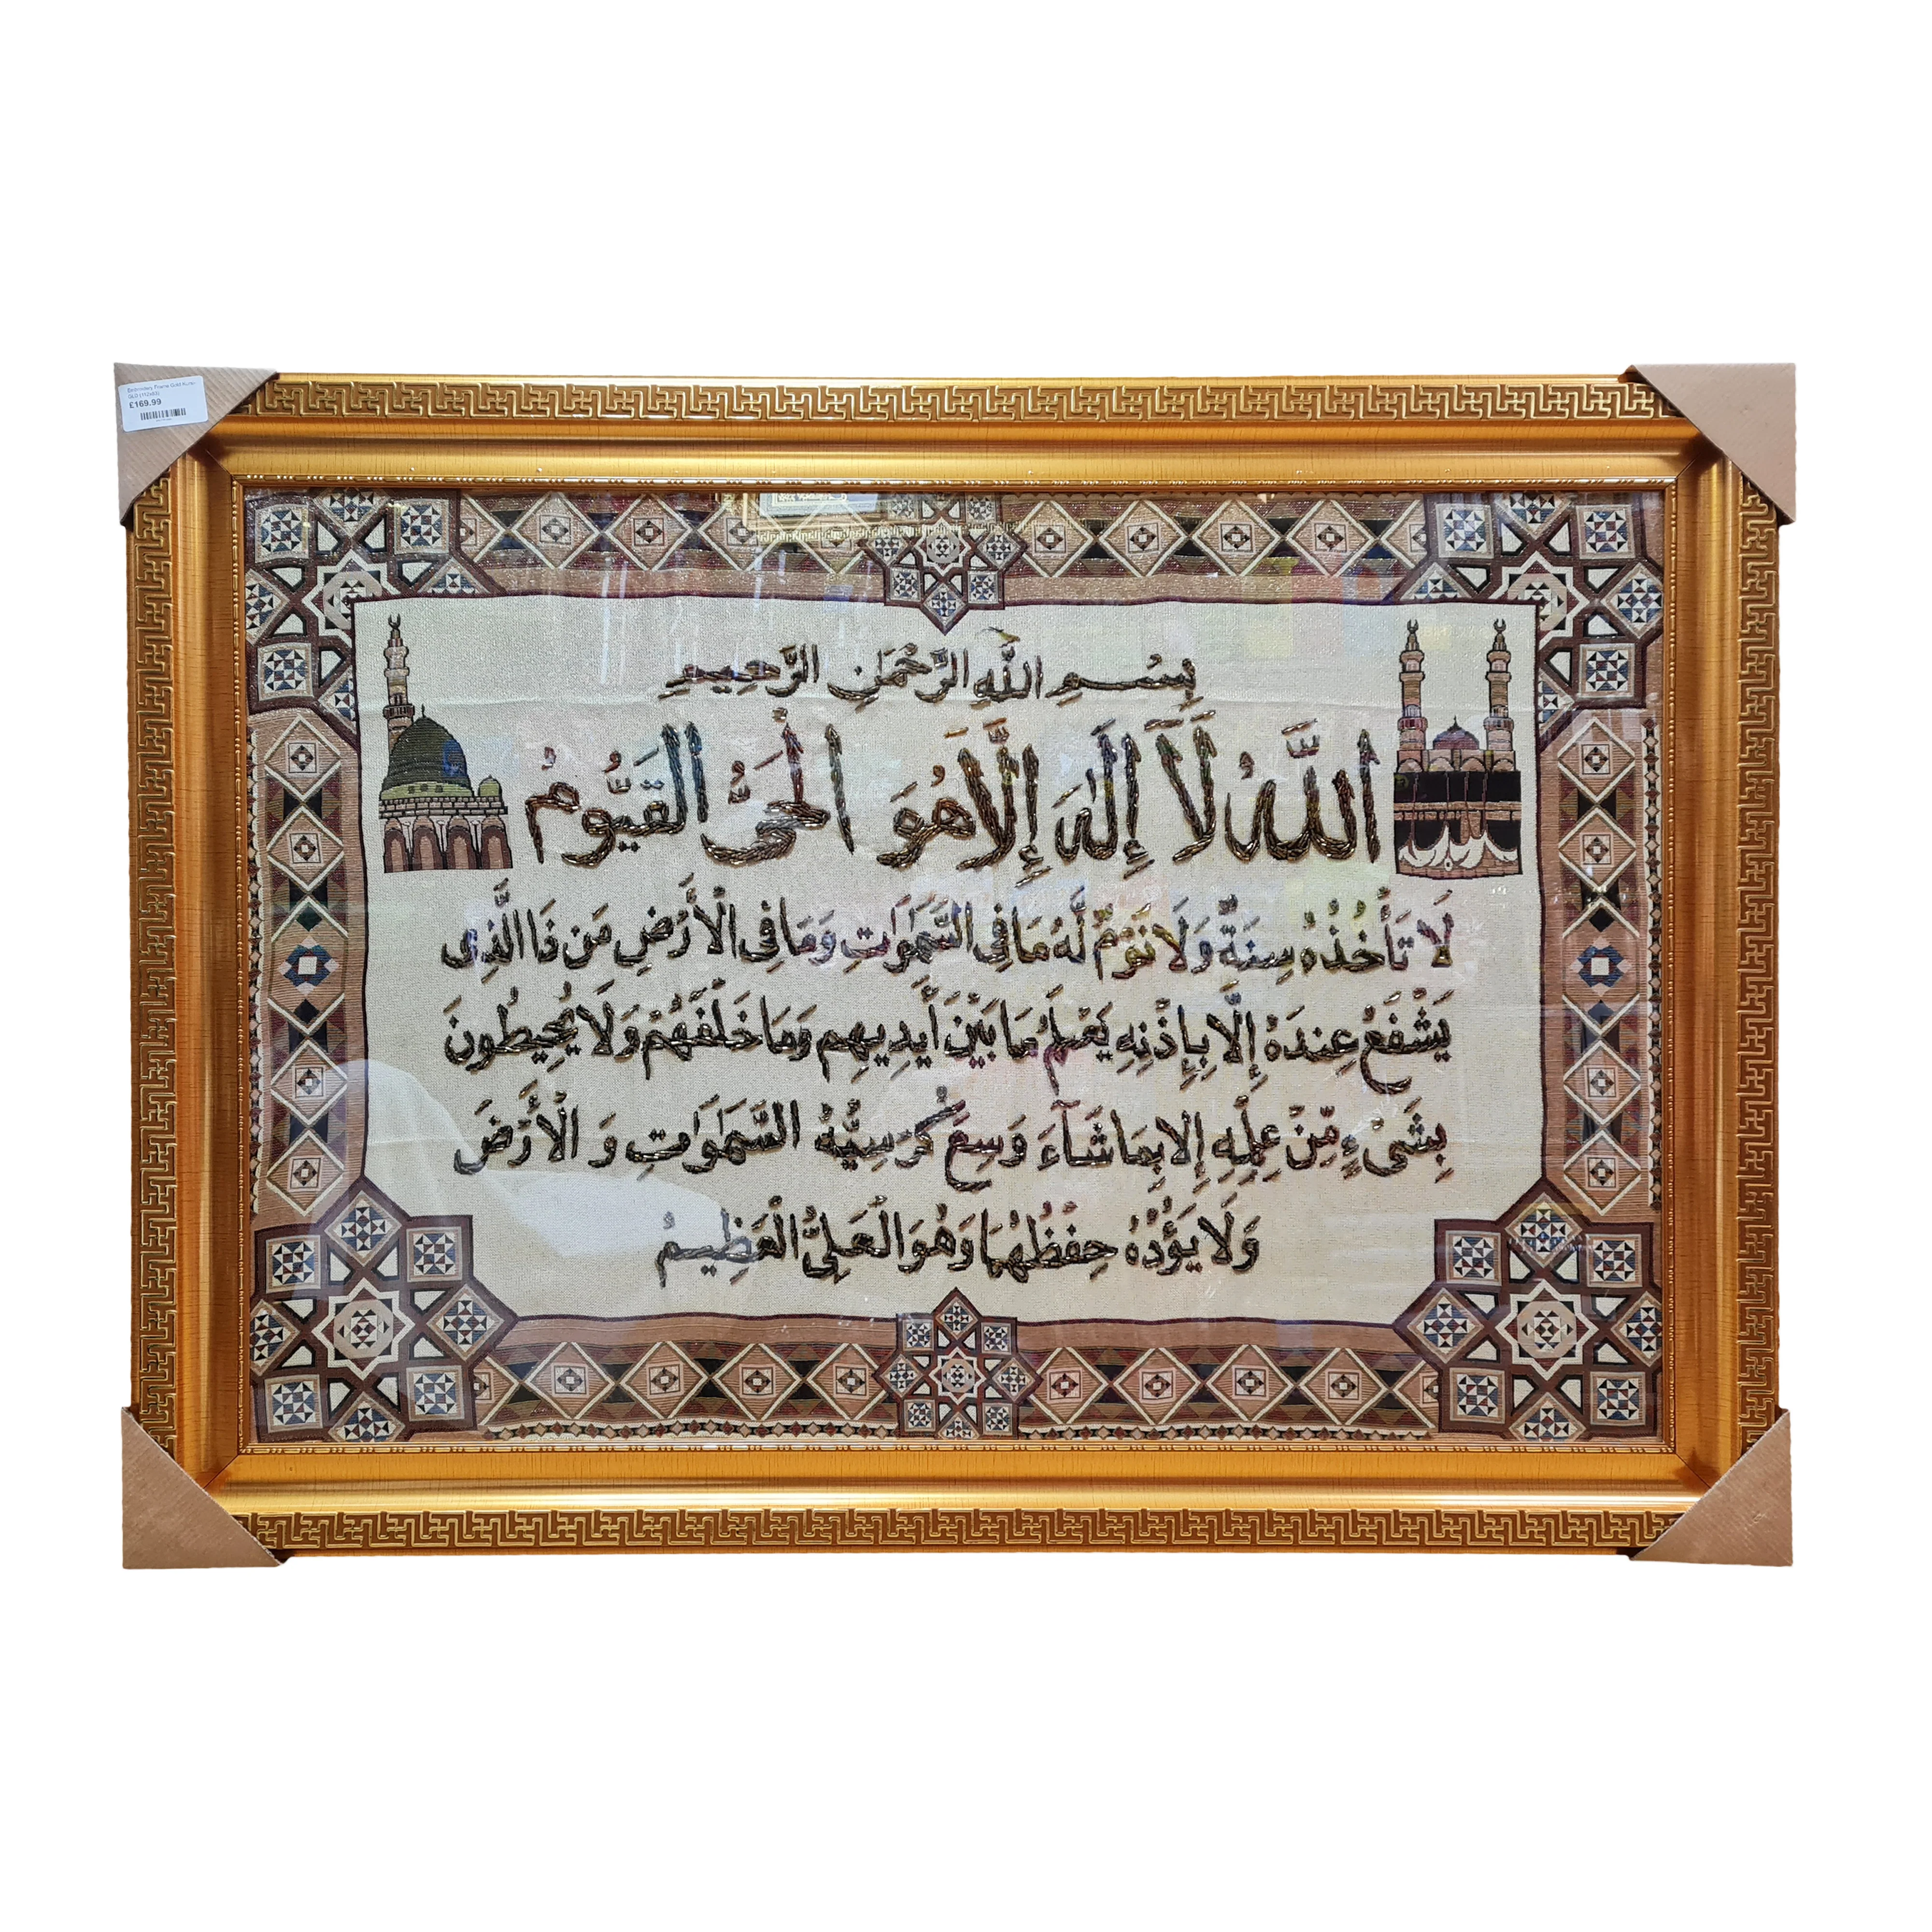 Embroidery Frame Gold
£169.99
بِسْمِ اللَّهِ الرَّحْمَٰنِ الرَّحِيمِ
اللَّهُ لَا إِلَٰهَ إِلَّا هُوَ الْحَيُّ الْقَيُّومُ
لَا تَأْخُذُهُ سِنَةٌ وَلَا نَوْمٌ لَّهُ مَا فِي السَّمَاوَاتِ وَمَا فِي الْأَرْضِ مَن ذَا الَّذِي
يَشْفَعُ عِندَهُ إِلَّا بِإِذْنِهِ يَعْلَمُ مَا بَيْنَ أَيْدِيهِمْ وَمَا خَلْفَهُمْ وَلَا يُحِيطُونَ
بِشَيْءٍ مِّنْ عِلْمِهِ إِلَّا بِمَا شَاءَ وَسِعَ كُرْسِيُّهُ السَّمَاوَاتِ وَالْأَرْضَ
وَلَا يَؤُدُهُ حِفْظُهُمَا وَهُوَ الْعَلِيُّ الْعَظِيمُ